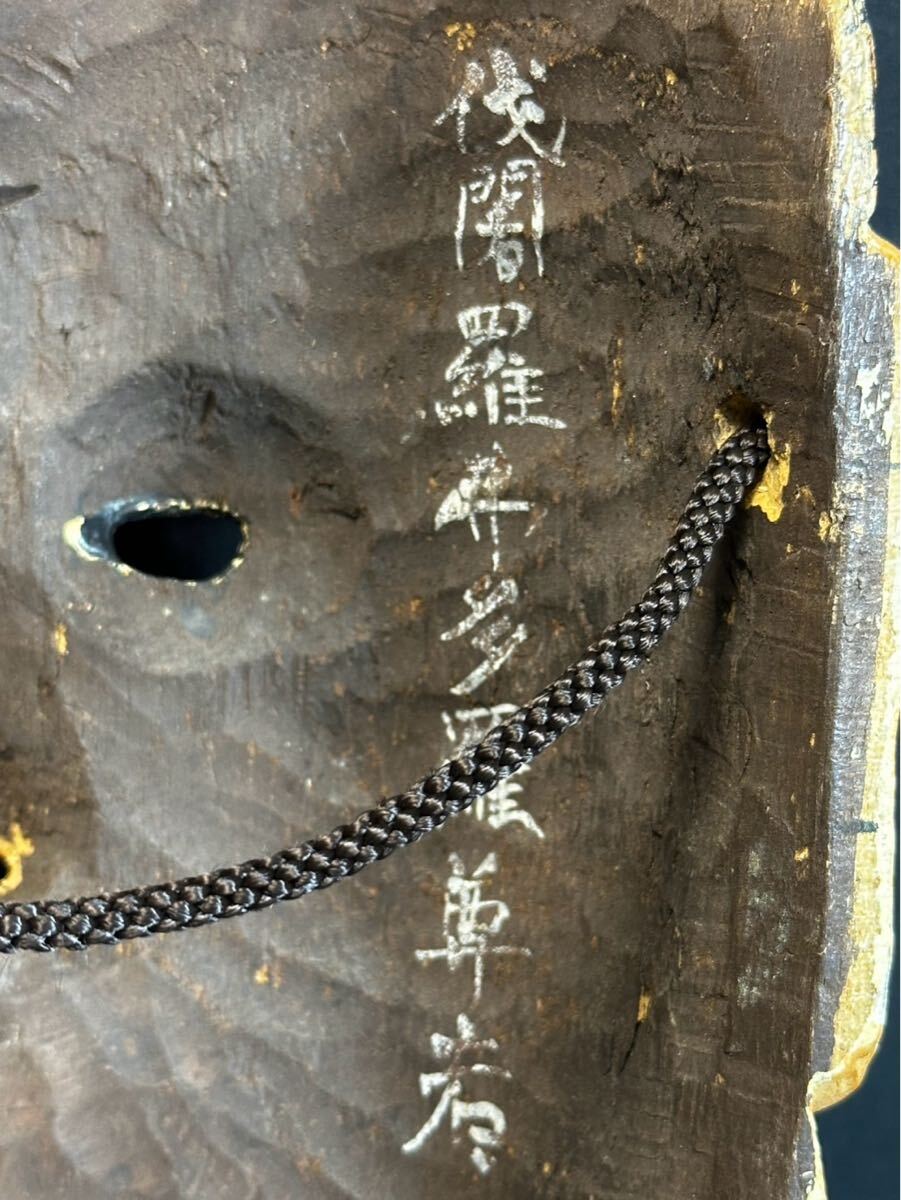 伐闍羅弗多羅尊者